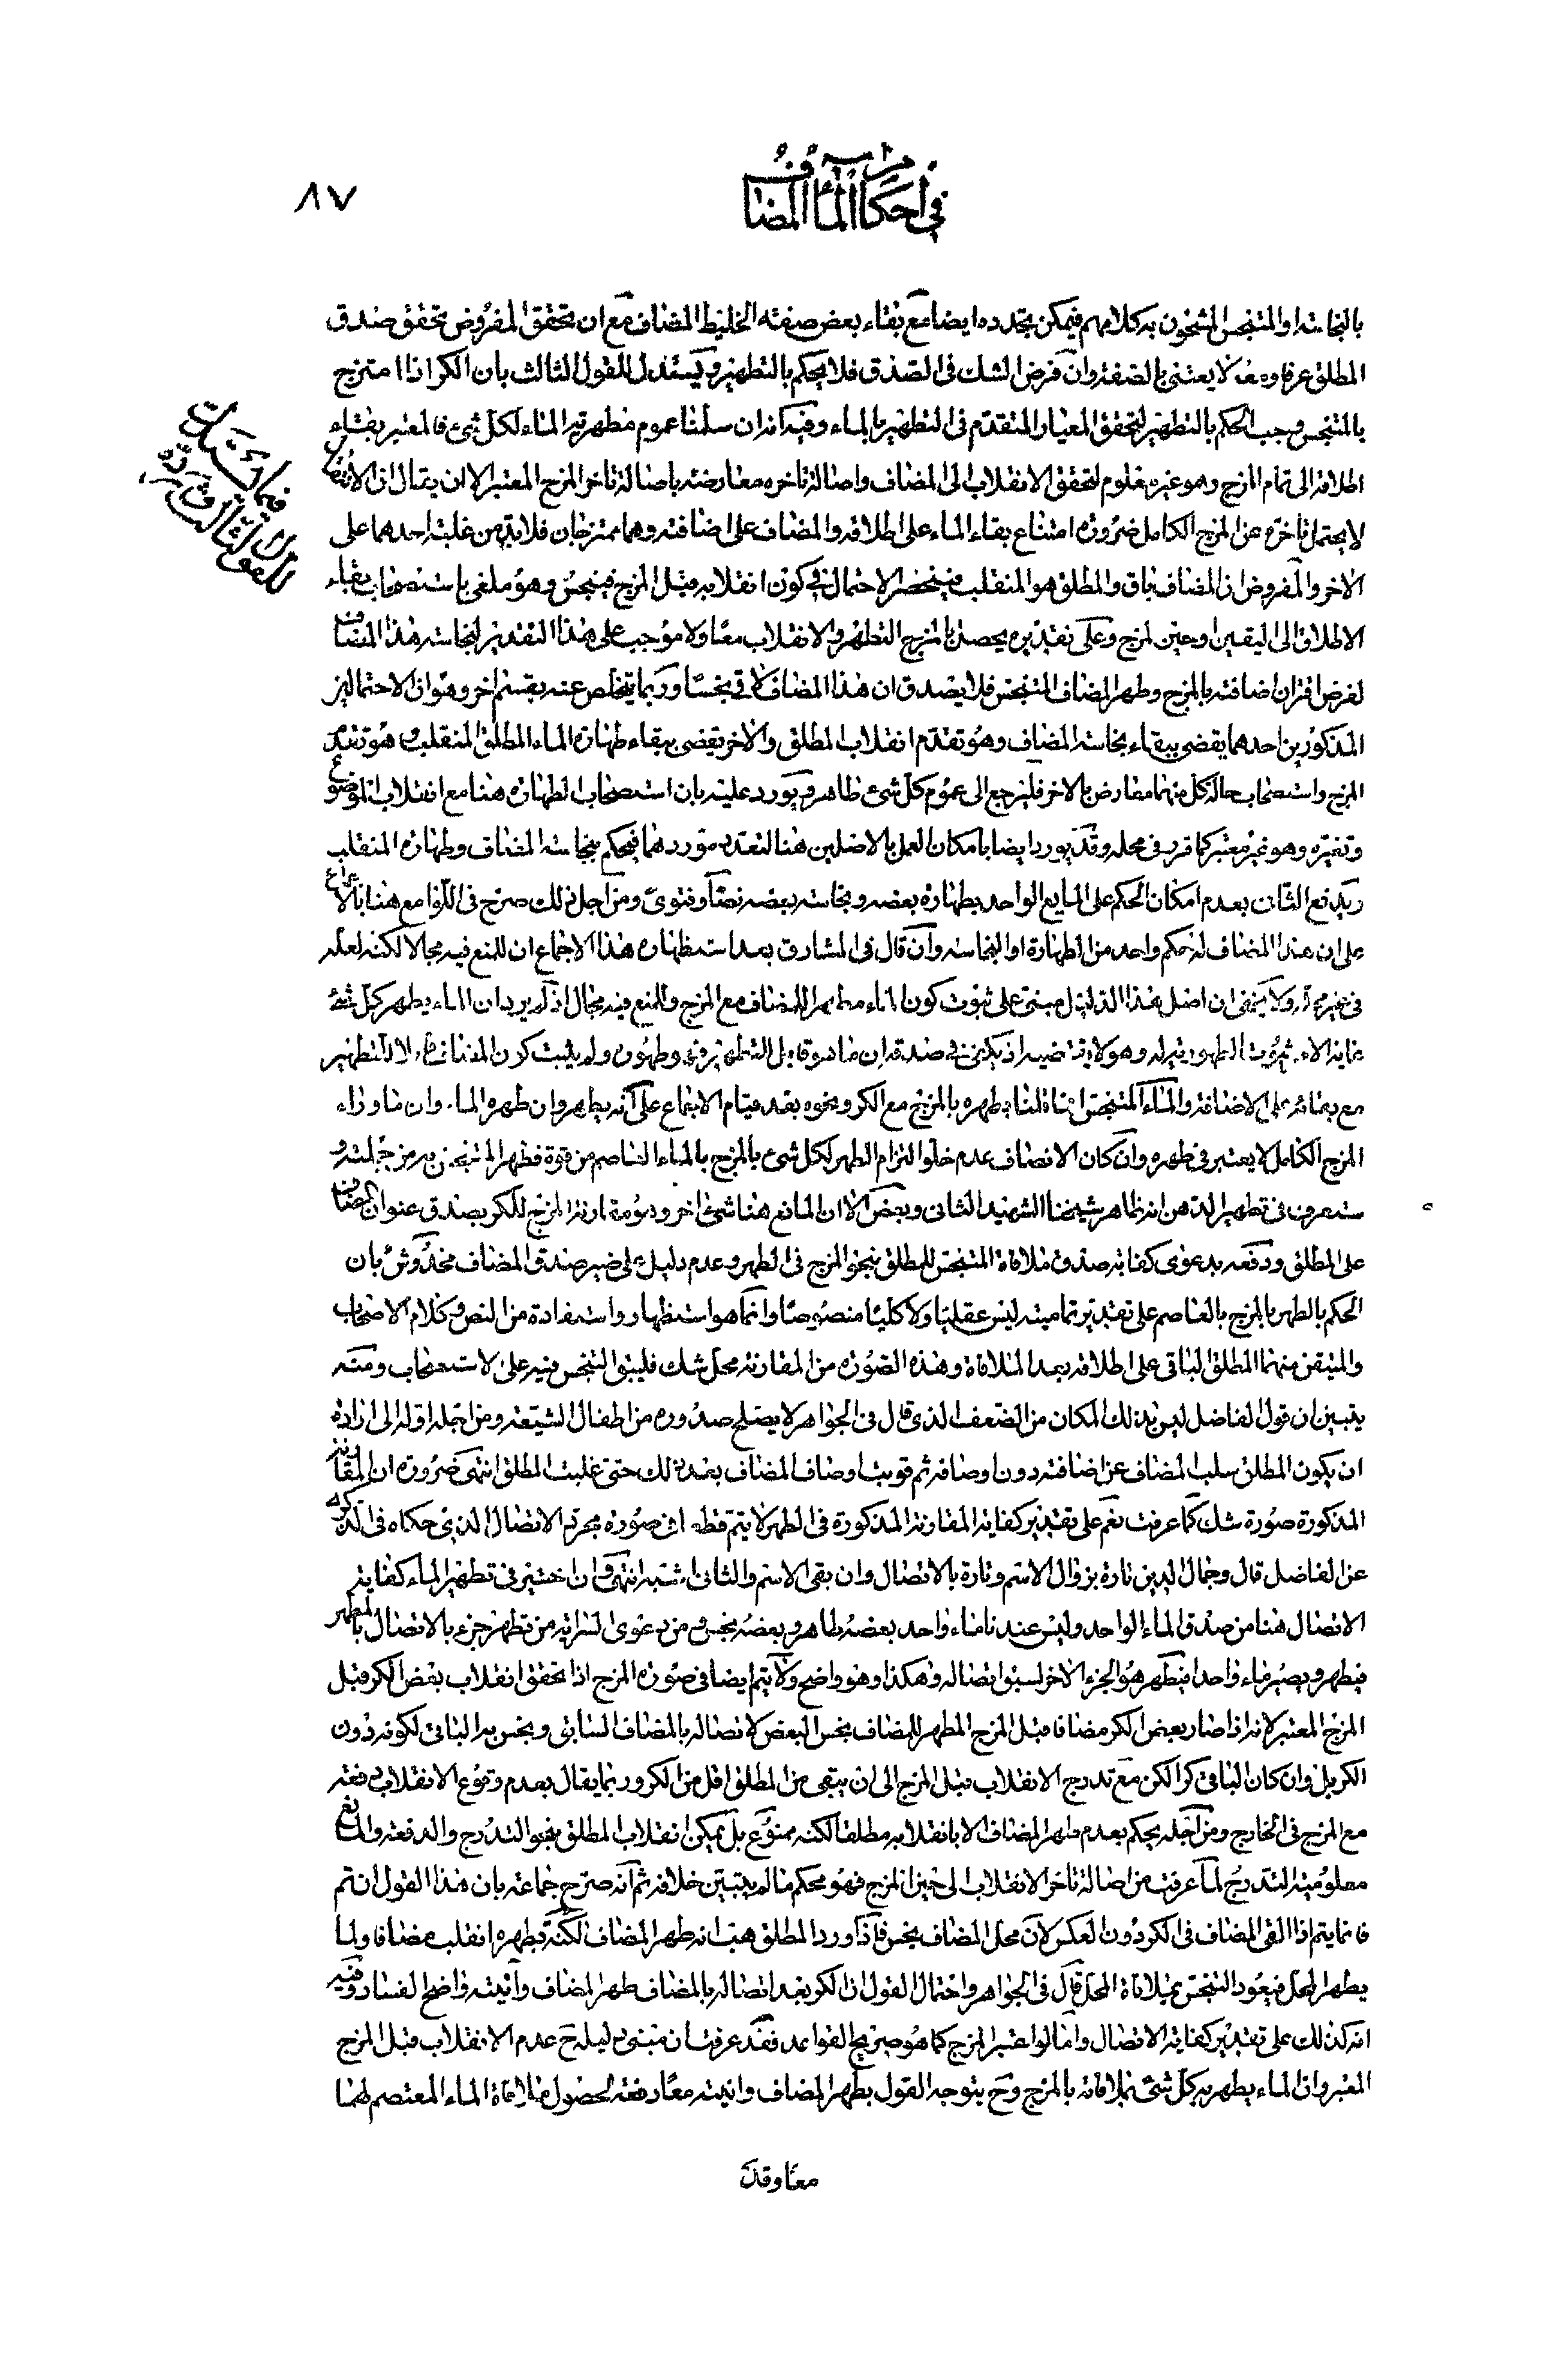 في أحكام الماء المضاف
٨٧
بالنجاسة او المتنجس المشحون به كلامهم فيمكن تجدده ايضا مع بقاء بعض صفته الخليط المضاف مع ان تحقق المفروض تحقق صدق
المطلق عرفا ومعه لا يعتنى بالصفة وان فرض الشك في الصدق فلا يحكم بالتطهير ويستدل للقول الثالث بان الكر اذا امتزج
بالمتنجس وجب الحكم بالتطهير لتحقق المعيار المتقدم في التطهير بالماء وفيه انه ان سلمنا عموم مطهرية الماء لكل شئ فالمعتبر بقاء
اطلاقه الى تمام المزج وهو غير معلوم لتحقق الانقلاب الى المضاف واصالة تاخره معارضة باصالة تاخر المزج المعتبر الا ان يقال ان الانقلاب
لا يحتمل تاخره عن المزج الكامل ضرورة امتناع بقاء الماء على اطلاقه والمضاف على اضافته وهما ممتزجان فلا بد من غلبة احدهما على
الاخر والمفروض ان المضاف باق والمطلق هو المنقلب فينحصر الاحتمال في كون انقلابه قبل المزج فينجس وهو ملغى باستصحاب بقاء
الاطلاق الى اليقين او حين المزج وعلى تقديره يحصل بالمزج التطهر والانقلاب معا ولا موجب على هذا التقدير لنجاسة هذا المضاف
لفرض اقتران اضافته بالمزج وطهر المضاف المتنجس فلا يصدق ان هذا المضاف لاقى نجسا وربما يتخلص عنه بقسم اخر وهو ان الاحتمالين
المذكورين احدهما يقضى ببقاء نجاسة المضاف وهو تقدم انقلاب المطلق والاخر يقضى ببقاء طهارة الماء المطلق المنقلب وهو تقدم
المزج واستصحاب حالة كل منهما معارض بالاخر فليرجع الى عموم كل شئ طاهر ويورد عليه بان استصحاب الطهارة هنا مع انقلاب الموضوع
وتغيره وهو غير معتبر كما قرر في محله وقد يورد ايضا بامكان العمل بالاصلين هنا لتعدد موردهما فيحكم بنجاسة المضاف وطهارة المنقلب
ويدفع الثانى بعدم امكان الحكم على المايع الواحد بطهارة بعضه ونجاسة بعضه نصا وفتوى ومن اجل ذلك صرح في اللوامع هنا بالاجماع
على ان هذا المضاف له حكم واحد من الطهارة او النجاسة وان قال في المشارق بعد استظهاره هذا الاجماع ان للمنع فيه مجالا لكنه لعله
في غير محله ولا يخفى ان اصل هذا الدليل مبنى على ثبوت كون الماء مطهرا للمضاف مع المزج وللمنع فيه مجال اذ لم يرد ان الماء يطهر كل شئ
غاية الامر ثبوت الطهورية له وهو لا يقتضيه اذ يكفى في صدقه ان ما هو قابل التطهير فهو طهور له ولم يثبت كون المضاف قابلا للتطهير
مع بقائه على الاضافة والماء المتنجس انما قلنا بطهره بالمزج مع الكر ونحوه بعد قيام الاجماع على انه يطهر وان طهره الماء وان ما وراء
المزج الكامل لا يعتبر في طهره وان كان الانصاف عدم خلو التزام الطهر لكل شئ بالمزج بالماء العاصم من قوة فطهر المتنجس به من جملته و
ستعرف في تطهير الدهن انه ظاهر شيخنا الشهيد الثانى وبعض الا ان المانع هنا شئ اخر وهو مقارنة المزج للكر بصدق عنوان المضاف
على المطلق ودفعه بدعوى كفاية صدق ملاقاة المتنجس للمطلق بنحو المزج في الطهر وعدم دليل على ضير صدق المضاف مخدوش بان
الحكم بالطهر بالمزج بالعاصم على تقدير تماميته ليس عقليا ولا كليا منصوصا وانما هو استظهار واستفادة من النص وكلام الاصحاب
والمتيقن منهما المطلق الباقى على اطلاقه بعد الملاقاة وهذه الصورة من المقارنة محل شك فليبق التنجس فيه على الاستصحاب ومنه
يتبين ان قول الفاضل ليس بذلك المكان من الضعف الذى قال في الجواهر لا يصلح صدوره من اطفال الشيعة ومن اجله اوله الى ارادة
ان يكون المطلق سلب المضاف عن اضافته دون اوصافه ثم قويت اوصاف المضاف بعد ذلك حتى غلبت المطلق انتهى ضرورة ان المقارنة
المذكورة صورة شك كما عرفت نعم على تقدير كفاية المقارنة المذكورة في الطهر لا يتم قطعا في صورة مجرد الاتصال الذى حكاه في الذكرى
عن الفاضل قال وجمال الدين تارة بزوال الاسم وتارة بالاتصال وان بقى الاسم والثانى اشبه انتهى وان اختير في تطهير الماء كفاية
الاتصال هنا من صدق الماء الواحد وليس عندنا ماء واحد بعضه طاهر وبعضه نجس ومن دعوى السراية من تطهر جزء بالاتصال بالمطهر
فيطهر ويصير ماء واحدا فيطهر هو الجزء الاخر لسبق اتصاله وهكذا وهو واضح ولا يتم ايضا في صورة المزج اذا تحقق انقلاب بعض الكر قبل
المزج المعتبر لانه اذا صار بعض الكر مضافا قبل المزج المطهر للمضاف نجس البعض لاتصاله بالمضاف السابق ونجس به الباقى لكونه دون
الكر بل وان كان الباقى كرا لكن مع تدرج الانقلاب قبل المزج الى ان يبقى من المطلق اقل من الكر وربما يقال بعدم وقوع الانقلاب دفعة
مع المزج في الخارج ومن اجله يحكم بعدم طهر المضاف الا بانقلابه مطلقا لكنه ممنوع بل يمكن انقلاب المطلق بنحو التدرج والدفعة والمانع
معلومية التدرج لما عرفت من اصالة تاخر الانقلاب الى حين المزج فهو محكم ما لم يتبين خلافه ثم انه صرح جماعة بان هذا القول ان تم
فانما يتم اذا القى المضاف في الكر دون العكس لان محل المضاف نجس فاذا ورد المطلق هب انه طهر المضاف لكنه بطهره انقلب مضافا ولما
يطهر المحل فيعود التنجس بملاقاة المحل قال في الجواهر واحتمال القول ان الكر بعد اتصاله بالمضاف طهر المضاف وآنيته واضح الفساد وفيه
انه كذلك على تقدير كفاية الاتصال واما لو اعتبر المزج كما هو صريح القواعد فقد عرفت ان مبنى دليله ح عدم الانقلاب قبل المزج
المعتبر وان الماء يطهر به كل شئ بملاقاته بالمزج وح يتوجه القول بطهر المضاف وانيته معا دفعة لحصول ملاقاة الماء المعتصم لهما
معا وقد
فيما يستدل
للقول الثالث ورده